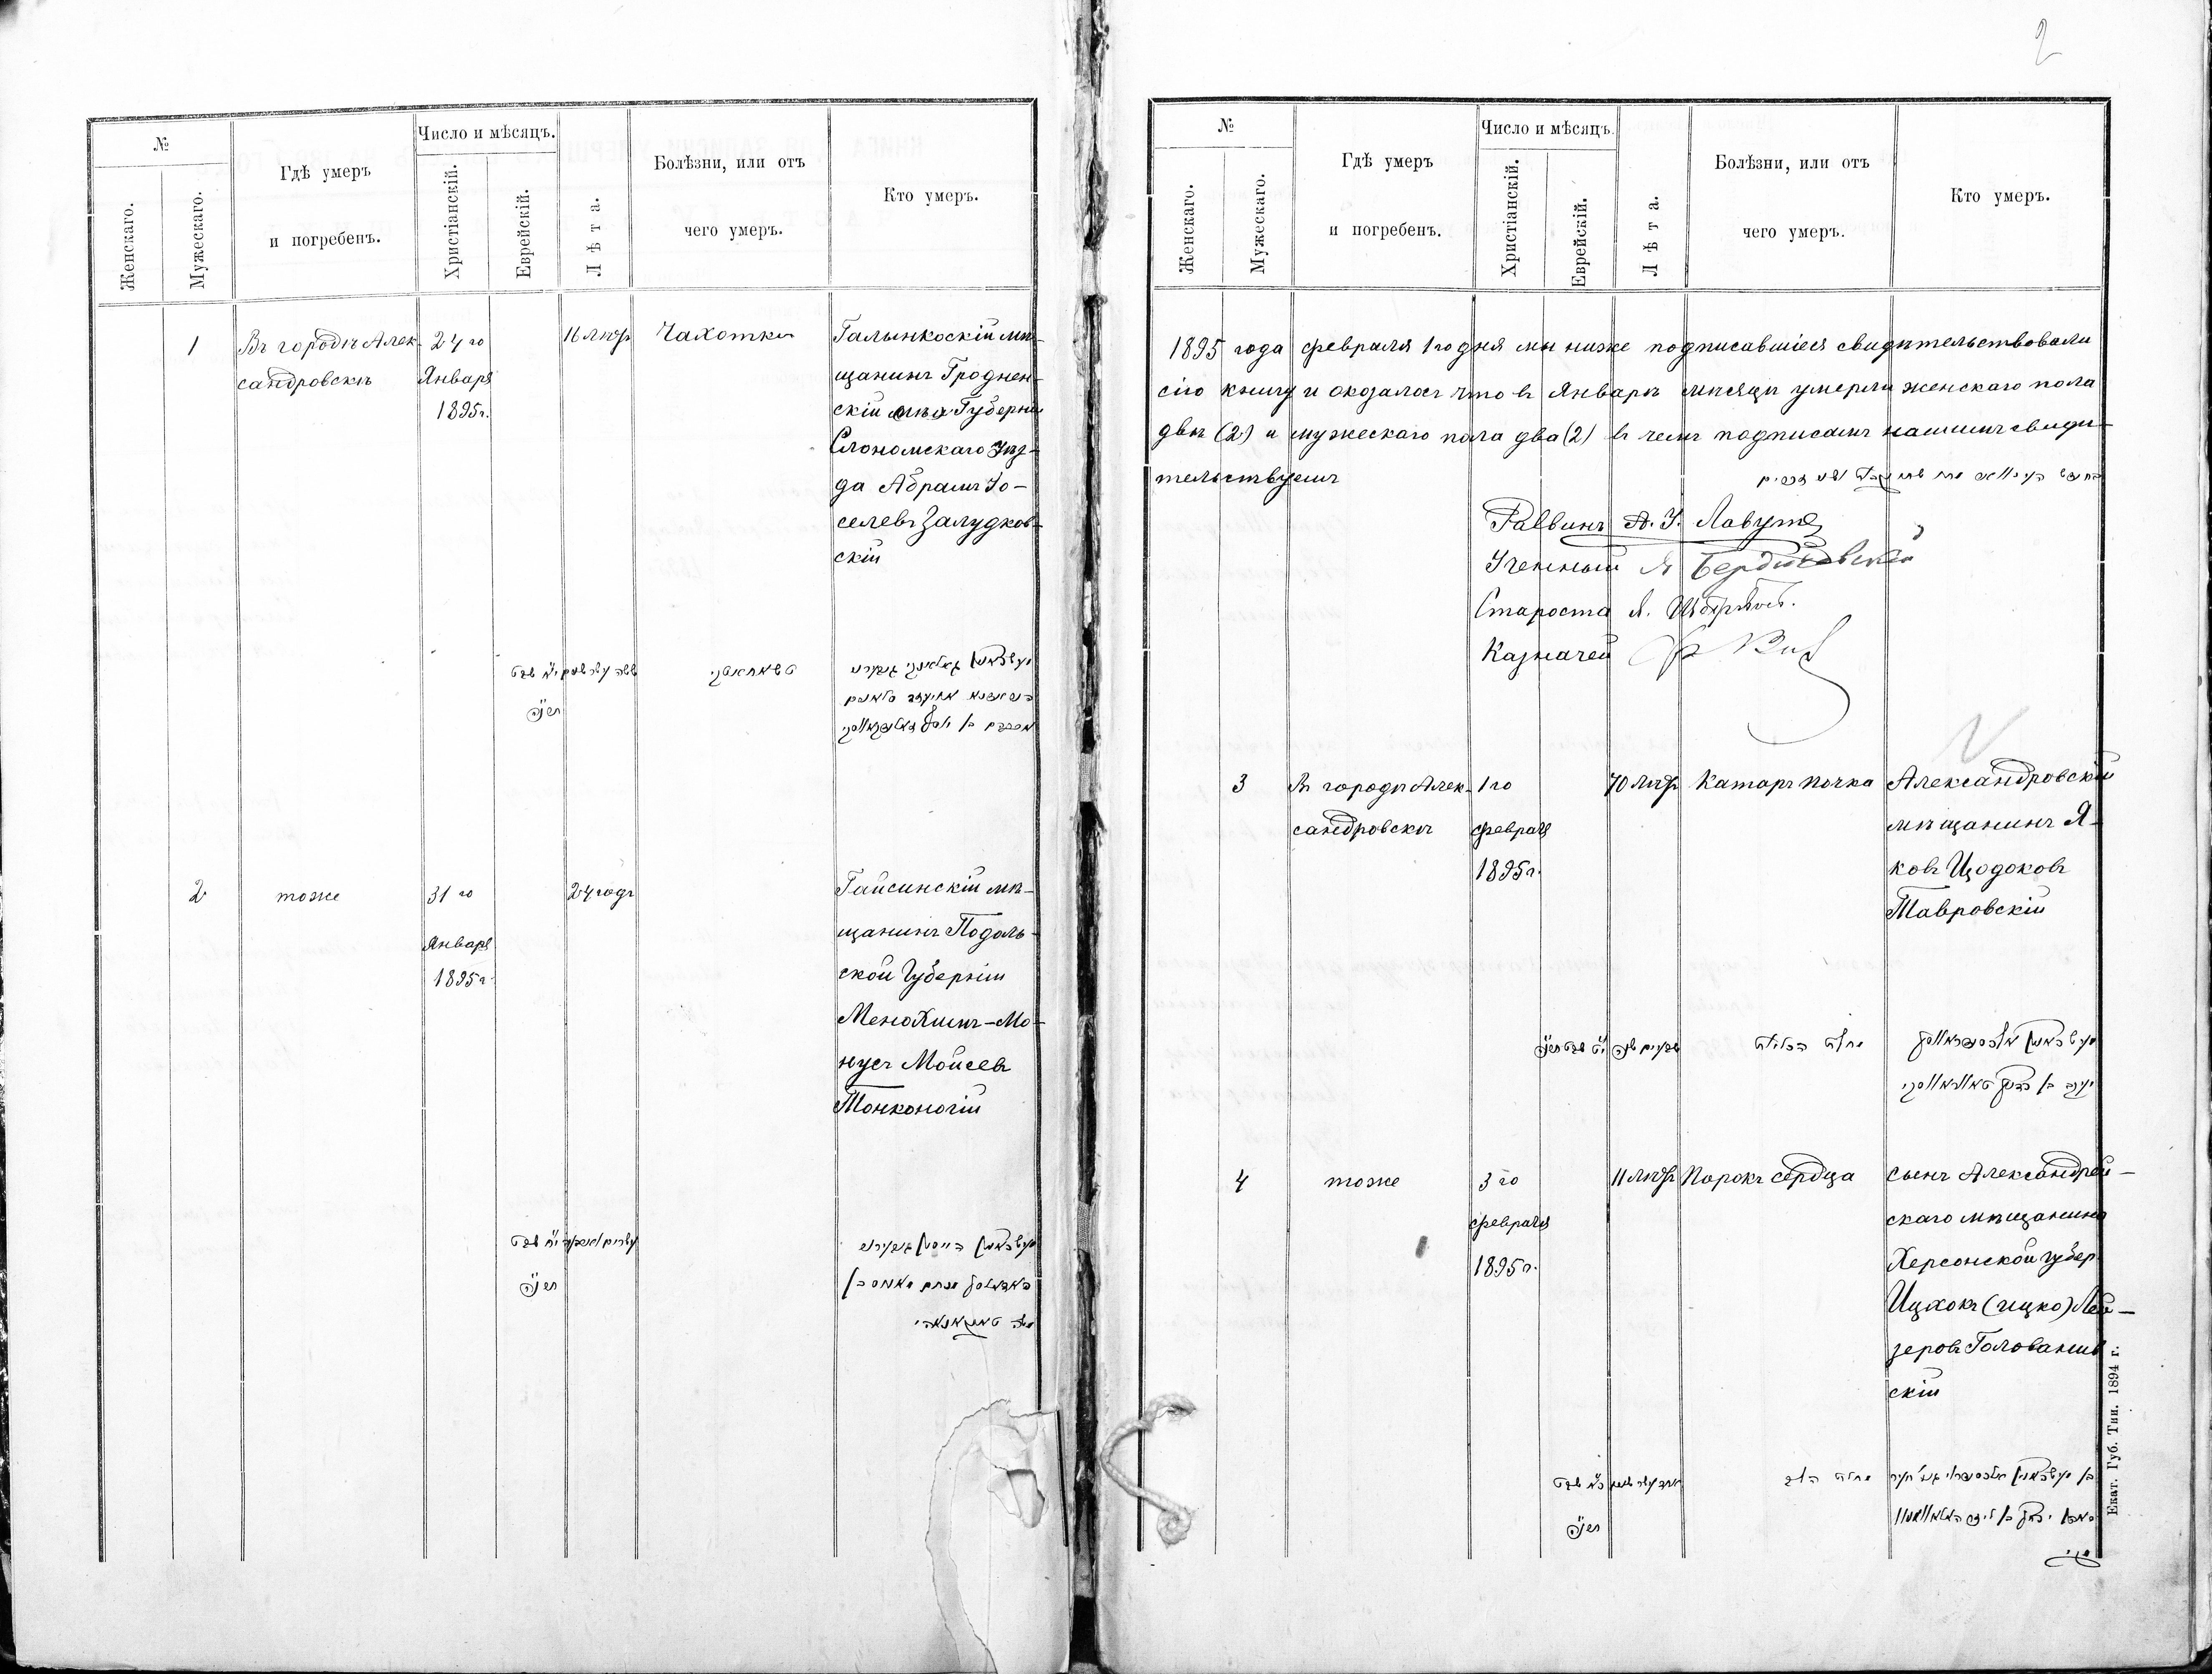 2
№
Женскаго.
Мужескаго.
Гдѣ умеръ
и погребенъ.
Число и мѣсяцъ.
Христіанскій.
Еврейскій.
Лѣта.
Болѣзни, или отъ
чего умеръ.
Кто умеръ.
1
Въ городѣ Алек-
сандровскѣ
24 го
Января
1895г.
16 лѣтъ
Чахотка
Галынкоскій мѣ-
щанинъ Гроднен-
ской Губерніи
Слонимскаго Уѣз-
да Абрамъ Іо-
селевъ Залудков-
скій
ששה עשר שנים
י״א שבט
תרנ״ה
2
тоже
31 го
Января
1895г.
24 годъ
Гайсинскій мѣ-
щанинъ Подоль-
ской Губерніи
Менохимъ-Мо-
нусъ Мойсевъ
Тонконогій
י״ח שבט
תרנ״ה
№
Женскаго.
Мужескаго.
Гдѣ умеръ
и погребенъ.
Число и мѣсяцъ.
Христіанскій.
Еврейскій.
Лѣта.
Болѣзни, или отъ
чего умеръ.
Кто умеръ.
1895 года февраля 1го дня мы ниже подписавшіеся свидѣтельствовали
сію книгу и оказалось что въ Январѣ мѣсяцѣ умерли женскаго пола
двѣ (2) и мужескаго пола два (2) въ чемъ подписомъ нашимъ свидѣ-
тельствуемъ
Раввинъ А. У. Лавутъ
Ученный Я Бердичевскій
Староста Я.
Казначей
3
Въ городѣ Алек-
сандровскѣ
1 го
февраля
1895г.
70 лѣтъ
Катаръ почка
Александровскій
мѣщанинъ Я-
ковъ Цодоковъ
Тавровскій
שבעים שנה
י״ט שבט תרנ״ה
מחלת הכליות
4
тоже
3 го
февраля
1895г.
11 лѣтъ
Порокъ сердца
сынъ Александрій-
скаго мѣщанина
Херсонской губер.
Ицхокъ (Ицко) Лей-
зеровъ Голованив
скій
כ״א שבט
תרנ״ה
מחלת הלב
Екат. Губ. Тип. 1894 г.